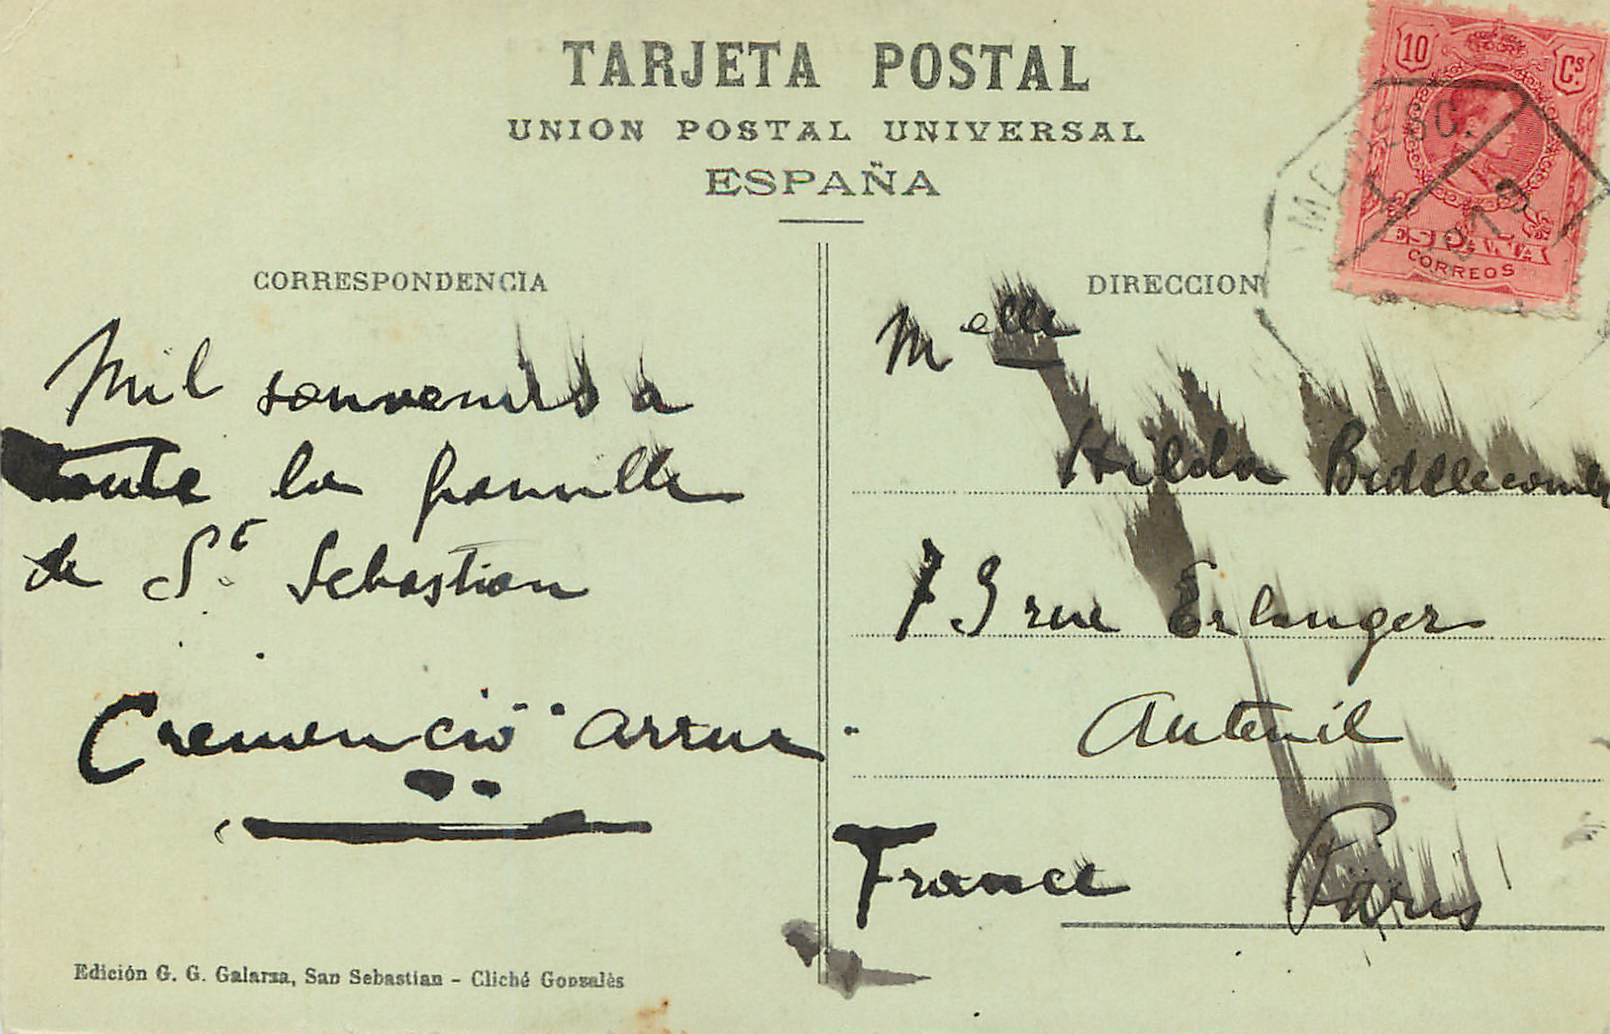 TARJETA POSTAL
UNION POSTAL UNIVERSAL
ESPAÑA
10 Cs
CORREOS
CORRESPONDENCIA
DIRECCION
Mil souvenirs a
toute la famille
de St Sebastian
Cremencio Arrue
Melle
Hilda Biddlecombe
79 rue Erlanger
Auteuil
France Paris
Edición G. G. Galarza, San Sebastian - Cliché Gonzalès